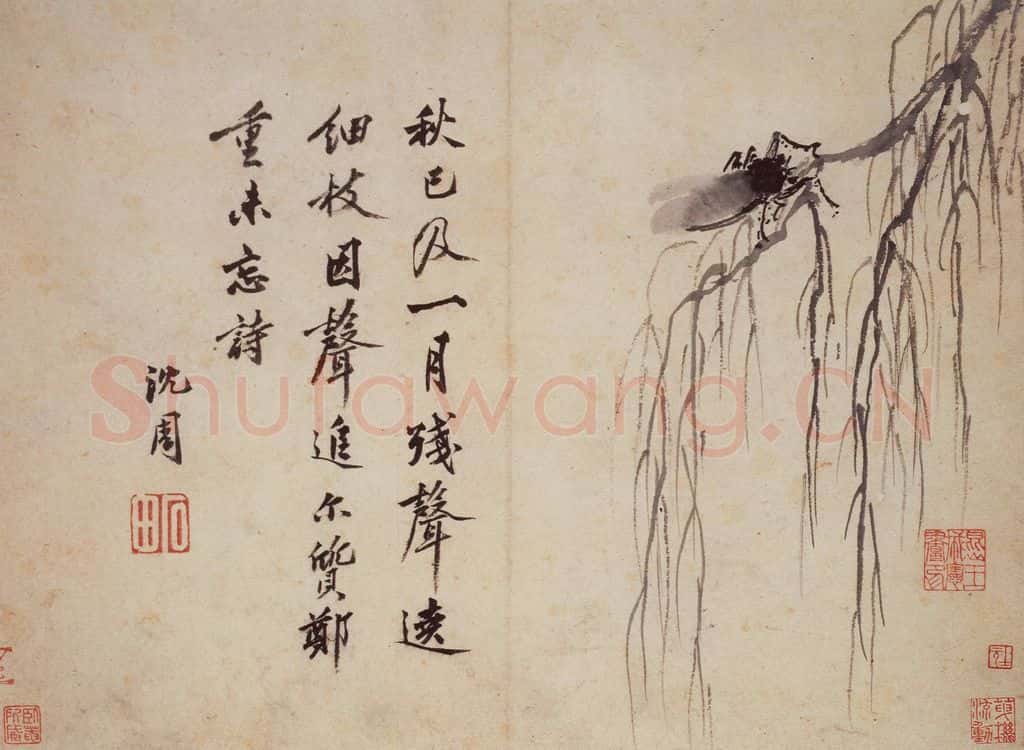 秋已及一月殘聲遶
細枝因聲追尔質鄭
重未忘詩
沈周
石田
Shufawang.CN